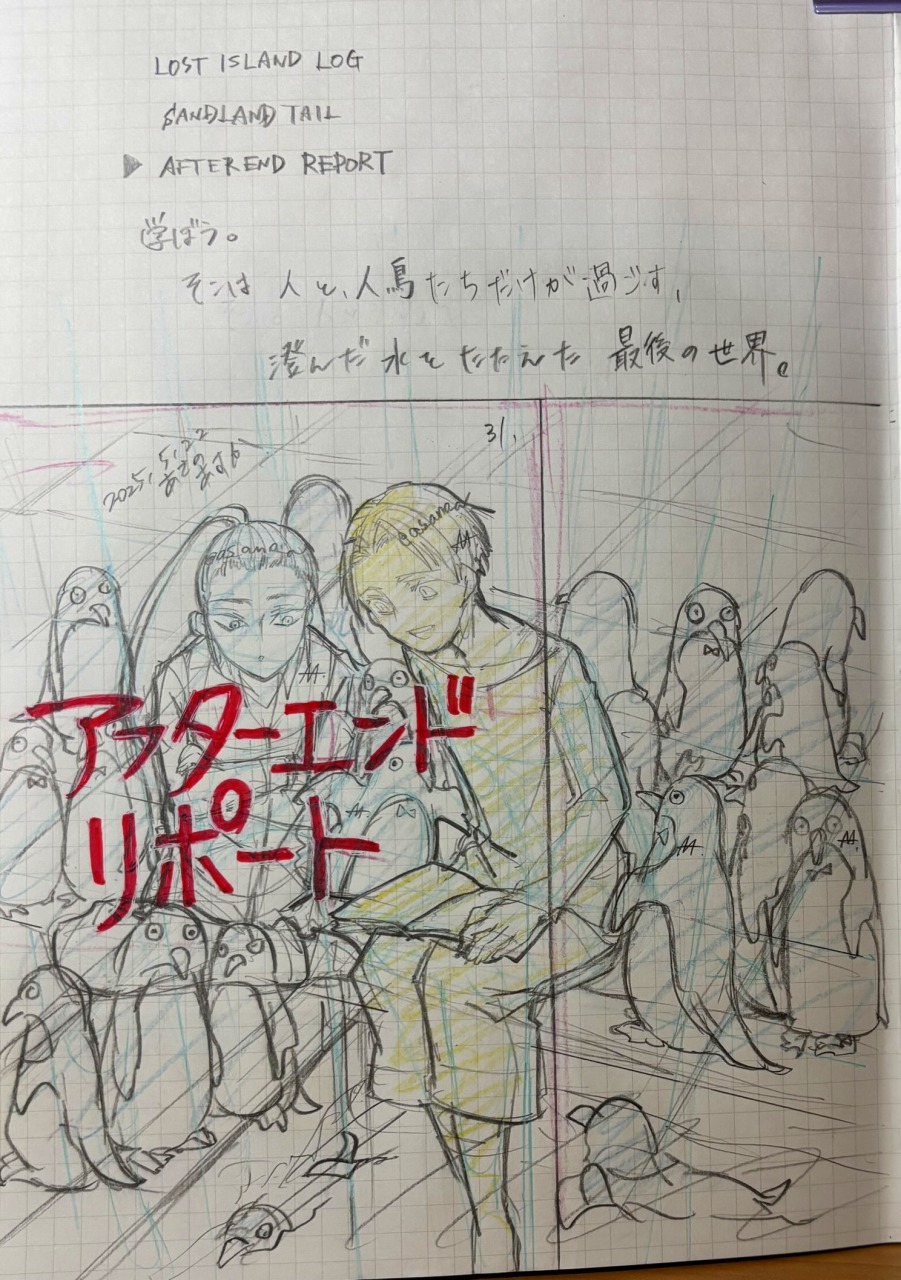 LOST ISLAND LOG
SANDLAND TAIL
▶ AFTEREND REPORT
学ぼう。
そこは 人と、人鳥たちだけが過ごす、
澄んだ 水をたたえた 最後の世界。
31.
2025.5.22
アフターエンド
リポート
AA.
AA.
AA.
AA.
AA.